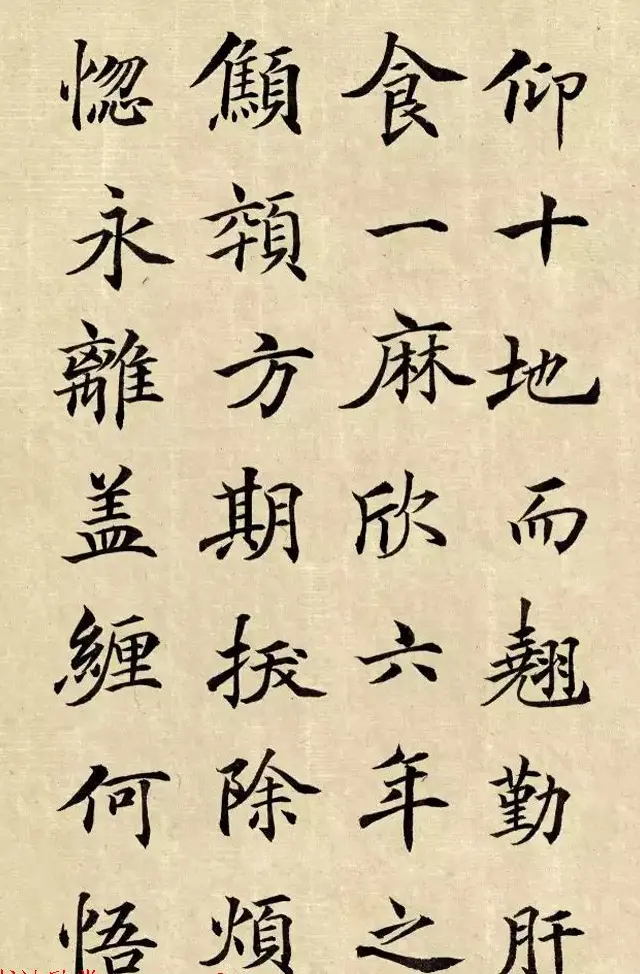 仰十地而翹勤肝
食一麻欣六年之
顦顇方期拔除煩
惚永離盖纏何悟